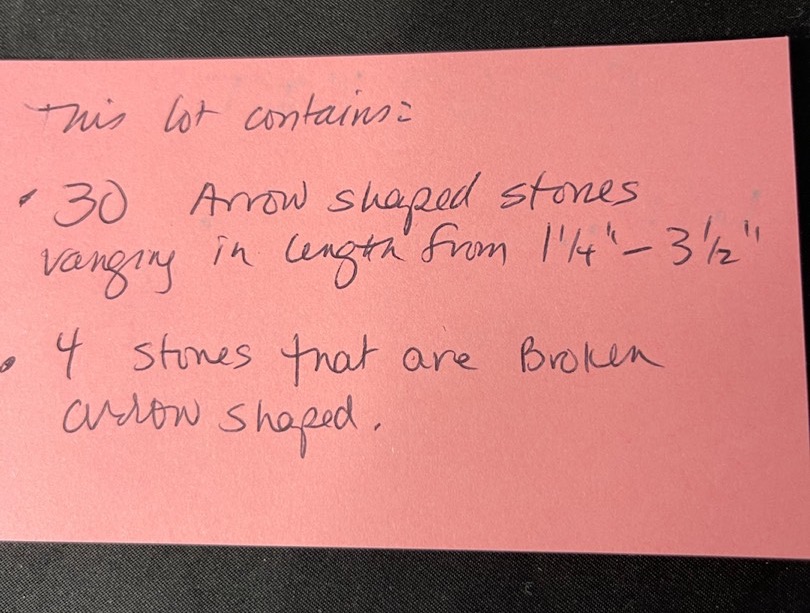 This lot contains:
• 30 Arrow shaped stones
ranging in length from 1 1/4" - 3 1/2"
• 4 stones that are Broken
arrow shaped.